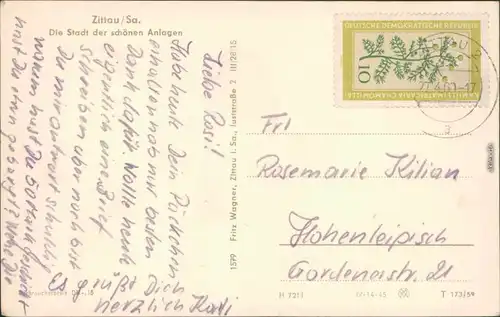 Zittau/Sa.
Die Stadt der schönen Anlagen
DEUTSCHE DEMOKRATISCHE REPUBLIK
10
MATRICARIA CHAMOMILLA
Liebe Rosi!
Habe heute Dein Päckchen
erhalten hab nur besten
Dank dafür. Wollte heute
eigentlich einen Brief
schreiben aber noch bist
Du mir antwort schuldig
warum hast Du 50 Mark
hast Du ein
Es grüßt Dich
herzlich
Frl
Rosemarie Kilian
Hohenleipisch
Gordenerstr. 21
1599 Fritz Wagner, Zittau i. Sa., Iuststraße 2 III/26/15
H 7211
T 173/59